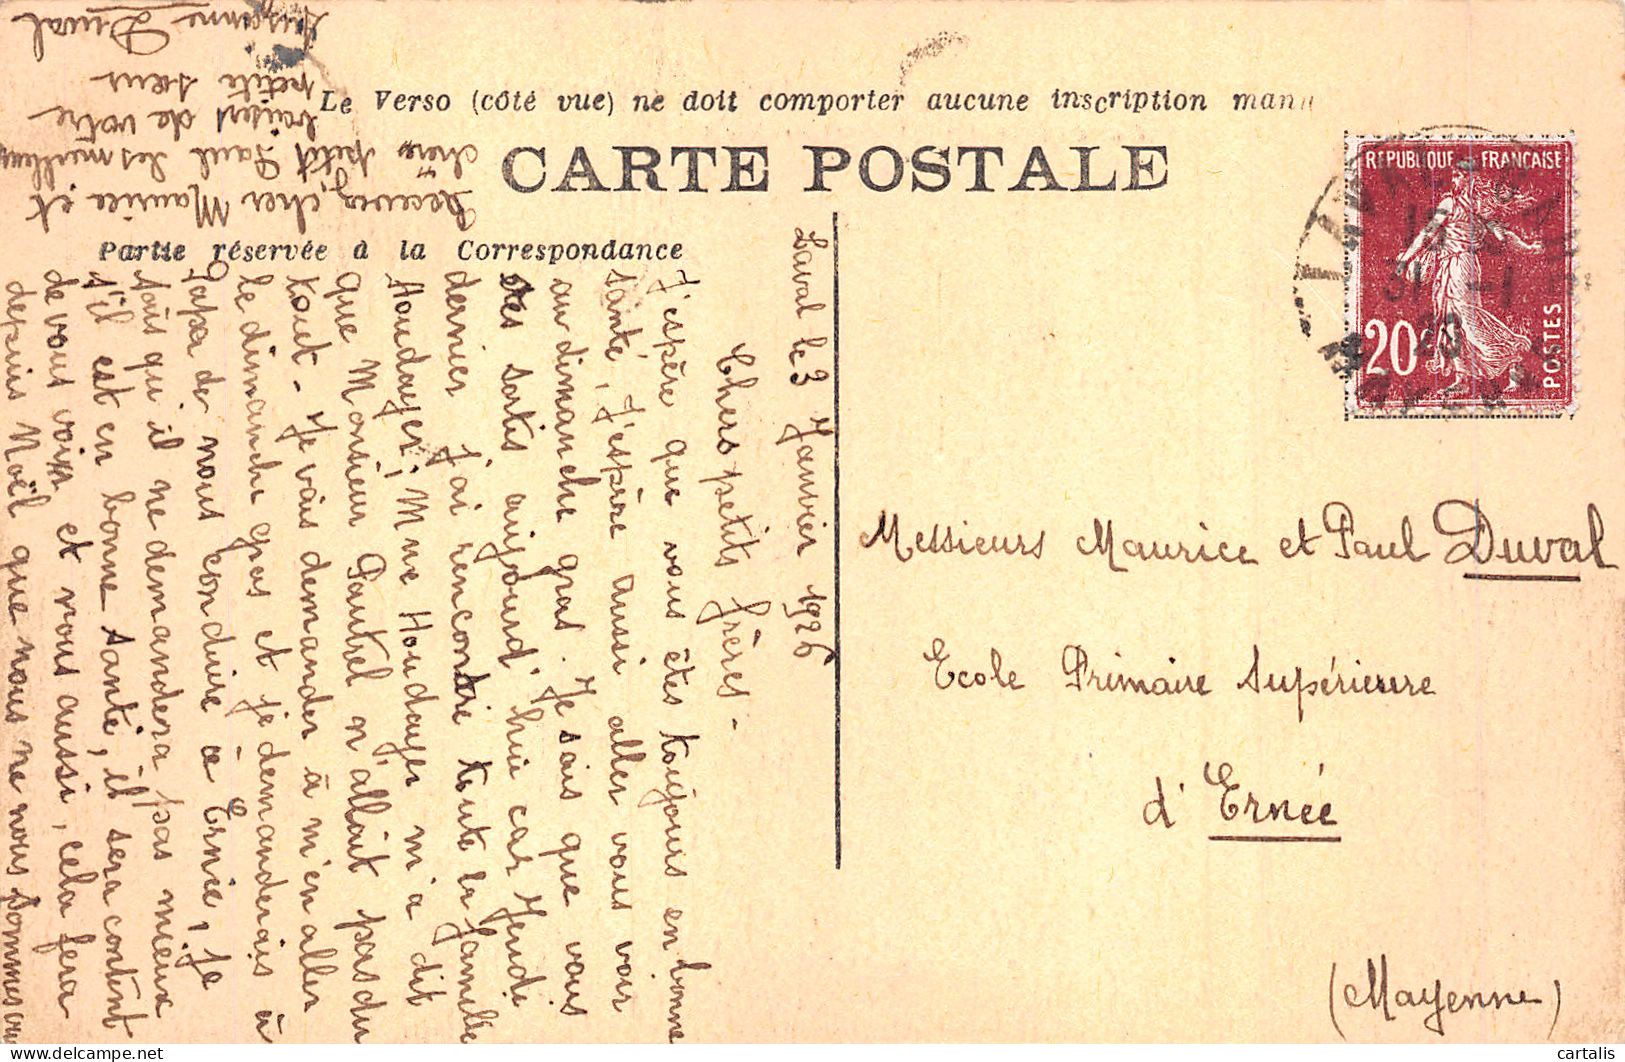 Le Verso (côté vue) ne doit comporter aucune inscription manu
CARTE POSTALE
Partie réservée à la Correspondance
REPUBLIQUE FRANÇAISE
20c
POSTES
31 -1
Laval le 3 Janvier 1926
Chers petits frères -
J'espère que vous êtes toujours en bonne
santé, j'espère aussi aller vous voir
au dimanche gras. Je sais que vous
êtes sortis aujourd'hui car Jeudi
dernier j'ai rencontré toute la famille
Houdayer; Mme Houdayer m'a dit
que Monsieur Pautrel n'allait pas du
tout - Je vais demander à m'en aller
le dimanche gras et je demanderais à
Papa de nous conduire à Ernée, je
sais qu'il ne demandera pas mieux
s'il est en bonne santé, il sera content
de vous voir et nous aussi, cela fera
depuis Noël que nous ne nous sommes vu
Recevez, cher Maurice et
cher petit Paul les meilleurs
baisers de votre
petite sœur
Suzanne Duval
Messieurs Maurice et Paul Duval
Ecole Primaire Supérieure
d'Ernée
(Mayenne)
cartalis